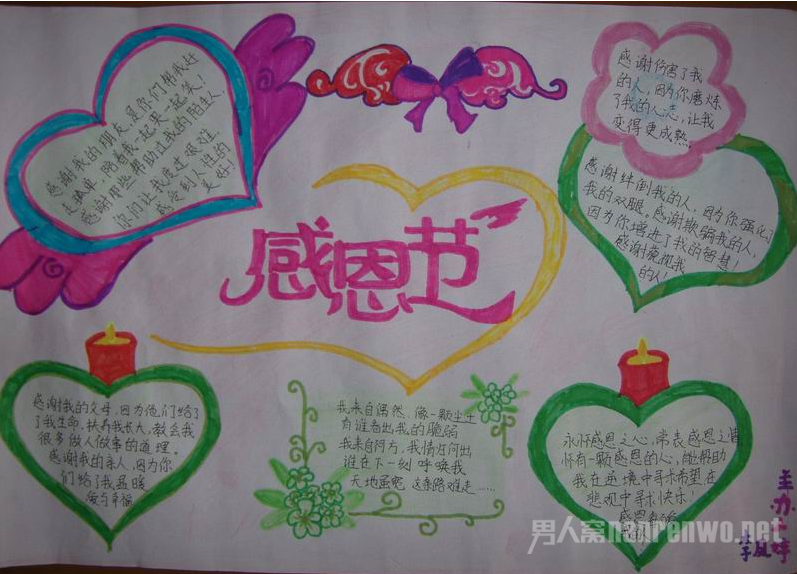 感谢我的朋友,是你们帮我赶
走孤单,陪着我一起哭一起笑!
感谢那些帮助过我的陌生人,
你们让我度过艰难
感受到人性的
美好!
感谢伤害了我
的人,因为你磨炼
了我的心志,让我
变得更成熟。
感谢绊倒我的人,因为你强化了
我的双腿。感谢欺骗我的人,
因为你增进了我的智慧!
感谢藐视我
的人!
感恩节
感谢我的父母,因为他们给了
了我生命,扶养我长大,教会我
很多做人做事的道理。
感谢我的亲人,因为你
们给了我温暖
爱与幸福
我来自偶然,像一颗尘土
有谁看出我的脆弱
我来自何方,我情归何处
谁在下一刻呼唤我
天地虽宽,这条路难走……
永怀感恩之心,常表感恩之情
怀有一颗感恩的心,能帮助
我在逆境中寻求希望在
悲观中寻求快乐!
感恩
主办
李
婷
男人窝nanrenwo.net